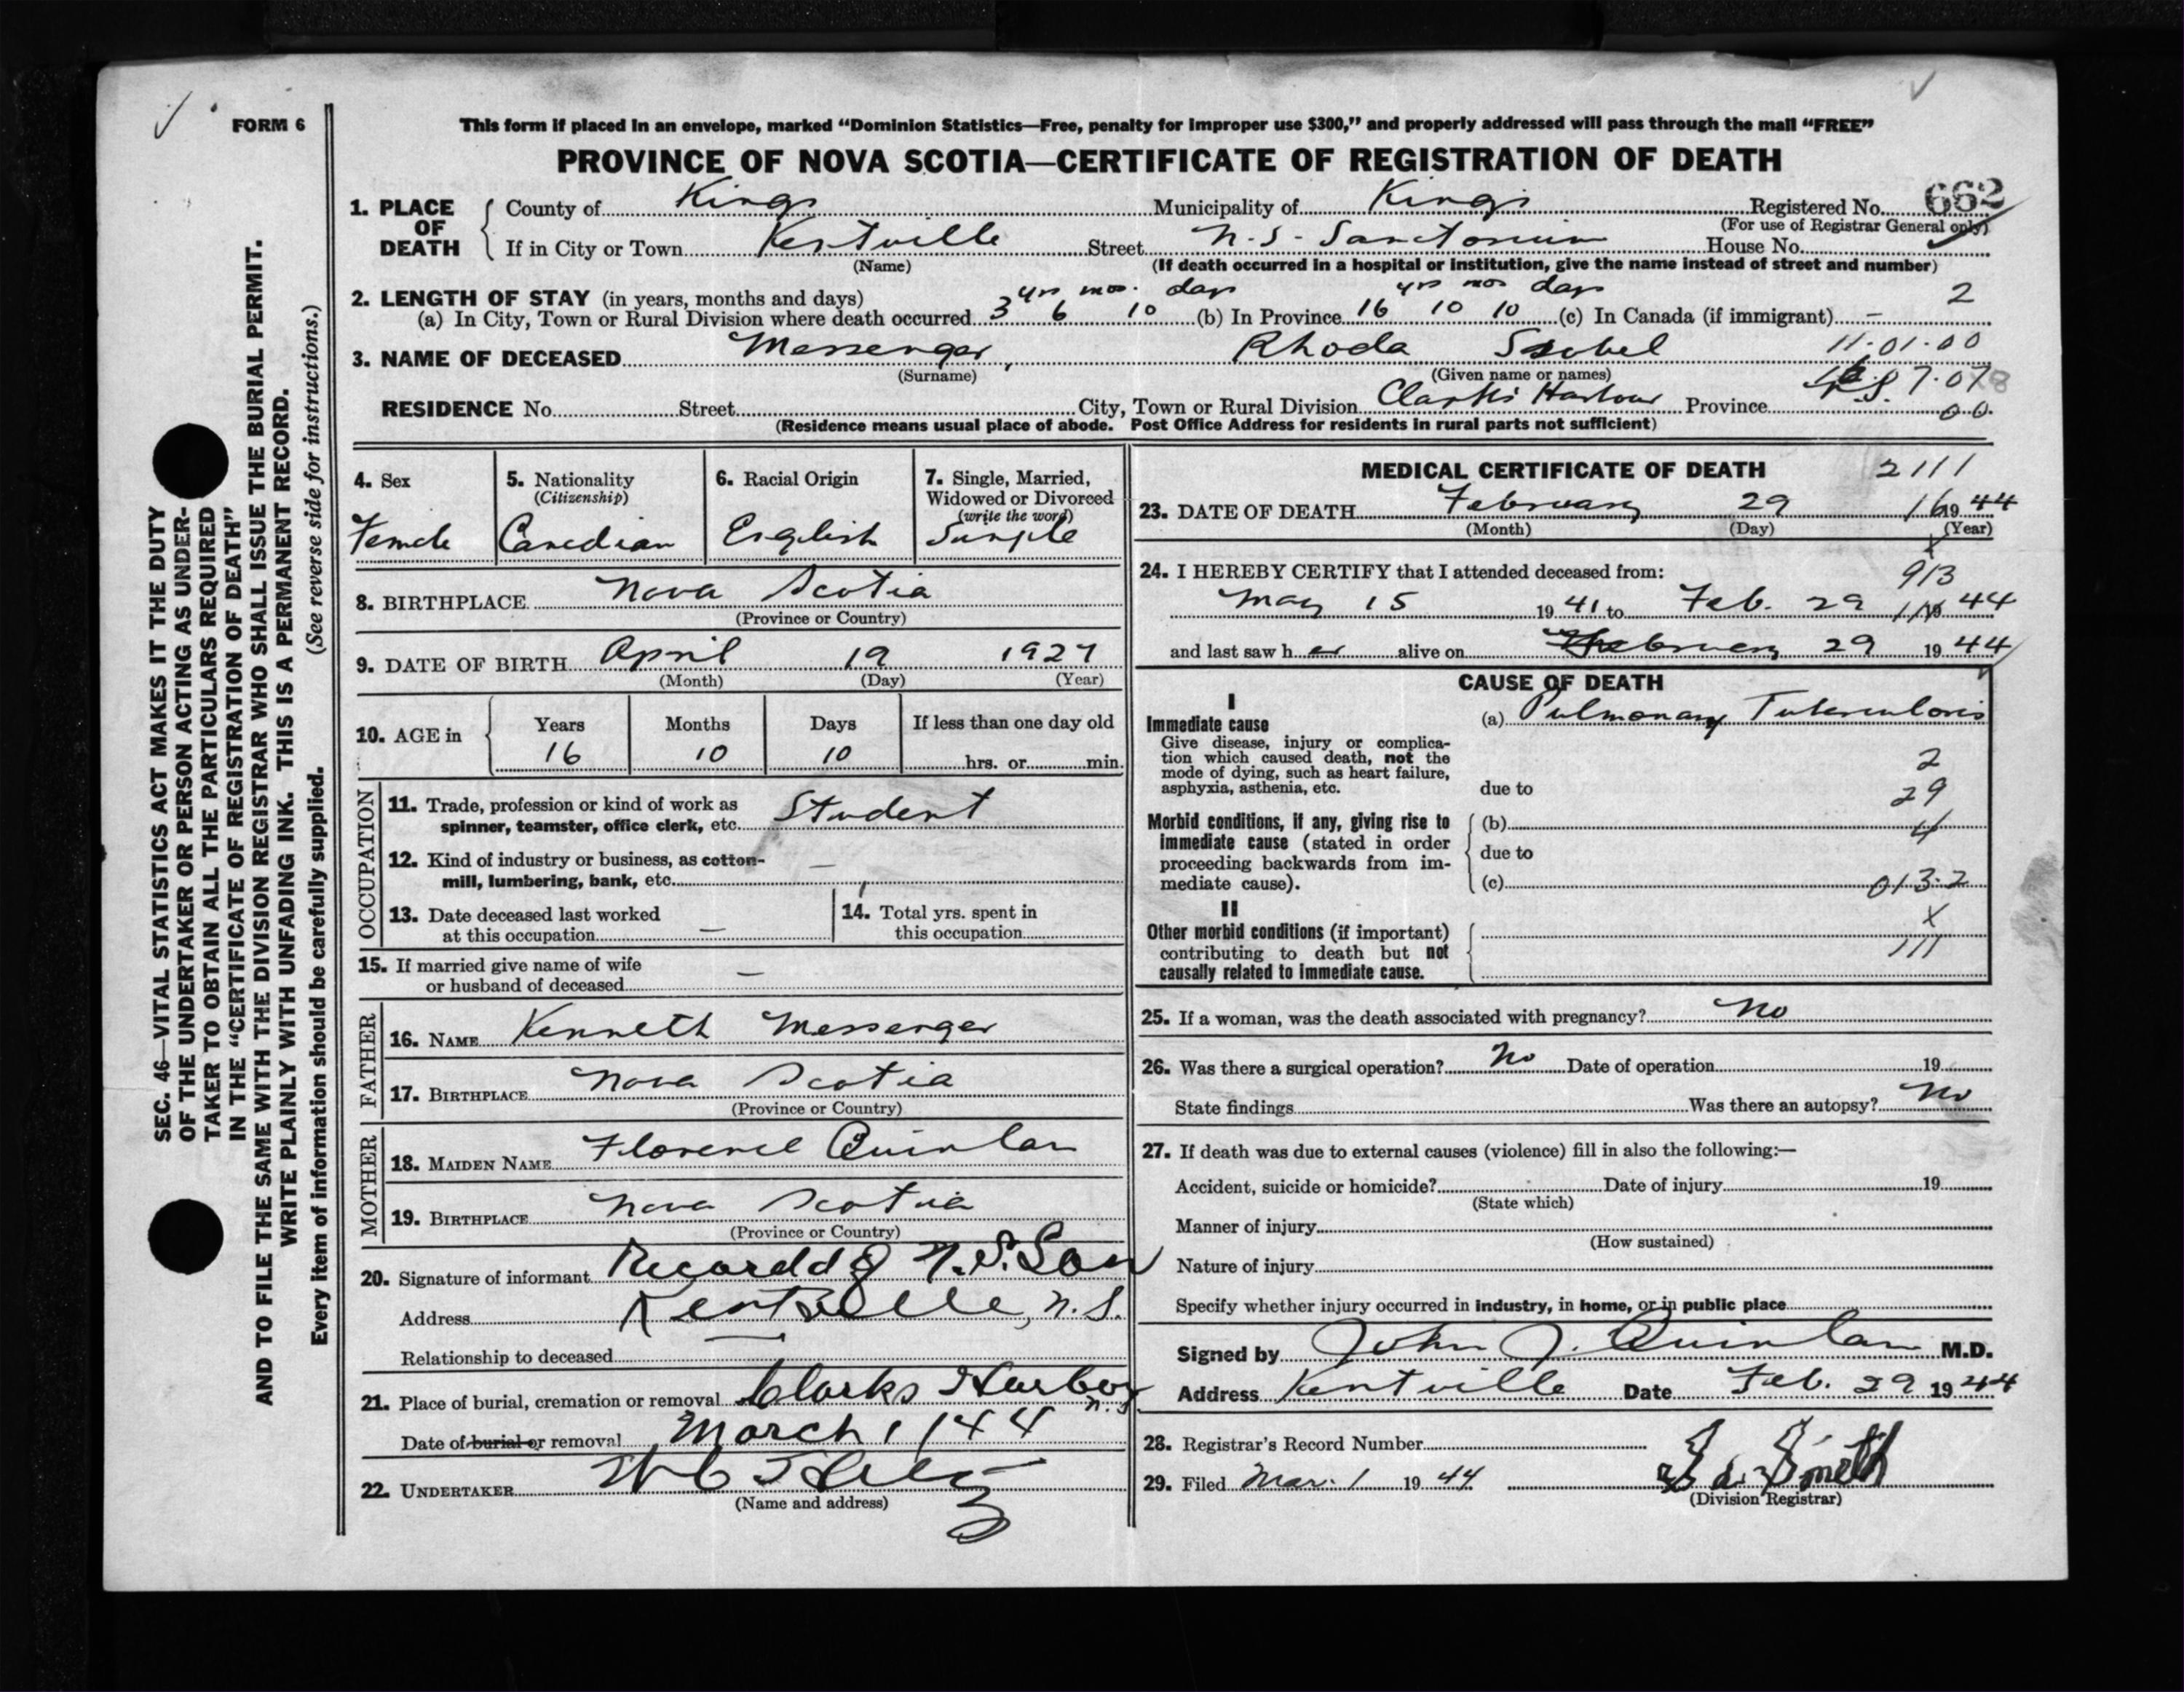 FORM 6
This form if placed in an envelope, marked “Dominion Statistics—Free, penalty for improper use $300,” and properly addressed will pass through the mail “FREE”
PROVINCE OF NOVA SCOTIA—CERTIFICATE OF REGISTRATION OF DEATH
1. PLACE OF DEATH County of Kings Municipality of Kings Registered No. 662
(For use of Registrar General only)
If in City or Town Kentville Street N.S. Sanatorium House No.
(Name) (If death occurred in a hospital or institution, give the name instead of street and number)
2. LENGTH OF STAY (in years, months and days) yrs mos. days yrs mos days 2
(a) In City, Town or Rural Division where death occurred 3 6 10 (b) In Province 16 10 10 (c) In Canada (if immigrant) —
3. NAME OF DECEASED Messenger, Rhoda Isobel 11.01.00
(Surname) (Given name or names)
RESIDENCE No. Street City, Town or Rural Division Clark's Harbour Province N.S. 7.07
00
(Residence means usual place of abode. Post Office Address for residents in rural parts not sufficient)
4. Sex Female
5. Nationality (Citizenship) Canadian
6. Racial Origin English
7. Single, Married, Widowed or Divorced (write the word) Single
8. BIRTHPLACE Nova Scotia
(Province or Country)
9. DATE OF BIRTH April 19 1927
(Month) (Day) (Year)
10. AGE in Years Months Days If less than one day old
16 10 10 hrs. or min.
OCCUPATION
11. Trade, profession or kind of work as spinner, teamster, office clerk, etc. Student
12. Kind of industry or business, as cotton-mill, lumbering, bank, etc. —
13. Date deceased last worked at this occupation —
14. Total yrs. spent in this occupation
15. If married give name of wife or husband of deceased —
FATHER
16. NAME Kenneth Messenger
17. BIRTHPLACE Nova Scotia
(Province or Country)
MOTHER
18. MAIDEN NAME Florence Quinlan
19. BIRTHPLACE Nova Scotia
(Province or Country)
20. Signature of informant Record of N.S. San
Address Kentville, N.S.
Relationship to deceased —
21. Place of burial, cremation or removal Clarks Harbor N.S.
Date of burial or removal March 1/44
22. UNDERTAKER
(Name and address)
MEDICAL CERTIFICATE OF DEATH 2111
23. DATE OF DEATH February 29 1944
16
(Month) (Day) (Year)
x
24. I HEREBY CERTIFY that I attended deceased from: 913
May 15 1941 to Feb. 29 1944
and last saw her alive on February 29 1944
CAUSE OF DEATH
I
Immediate cause (a) Pulmonary Tuberculosis
Give disease, injury or complication which caused death, not the mode of dying, such as heart failure, asphyxia, asthenia, etc.
2
due to 29
Morbid conditions, if any, giving rise to immediate cause (stated in order proceeding backwards from immediate cause).
(b) 4
due to
(c) 013.2
II
x
Other morbid conditions (if important) contributing to death but not causally related to immediate cause.
111
25. If a woman, was the death associated with pregnancy? No
26. Was there a surgical operation? No Date of operation 19
State findings Was there an autopsy? No
27. If death was due to external causes (violence) fill in also the following:—
Accident, suicide or homicide? Date of injury 19
(State which)
Manner of injury
(How sustained)
Nature of injury
Specify whether injury occurred in industry, in home, or in public place
Signed by John J. Quinlan M.D.
Address Kentville Date Feb. 29 1944
28. Registrar's Record Number
29. Filed Mar. 1 1944 Smith
(Division Registrar)
SEC. 46—VITAL STATISTICS ACT MAKES IT THE DUTY
OF THE UNDERTAKER OR PERSON ACTING AS UNDER-
TAKER TO OBTAIN ALL THE PARTICULARS REQUIRED
IN THE “CERTIFICATE OF REGISTRATION OF DEATH”
AND TO FILE THE SAME WITH THE DIVISION REGISTRAR WHO SHALL ISSUE THE BURIAL PERMIT.
WRITE PLAINLY WITH UNFADING INK. THIS IS A PERMANENT RECORD.
Every item of information should be carefully supplied. (See reverse side for instructions.)